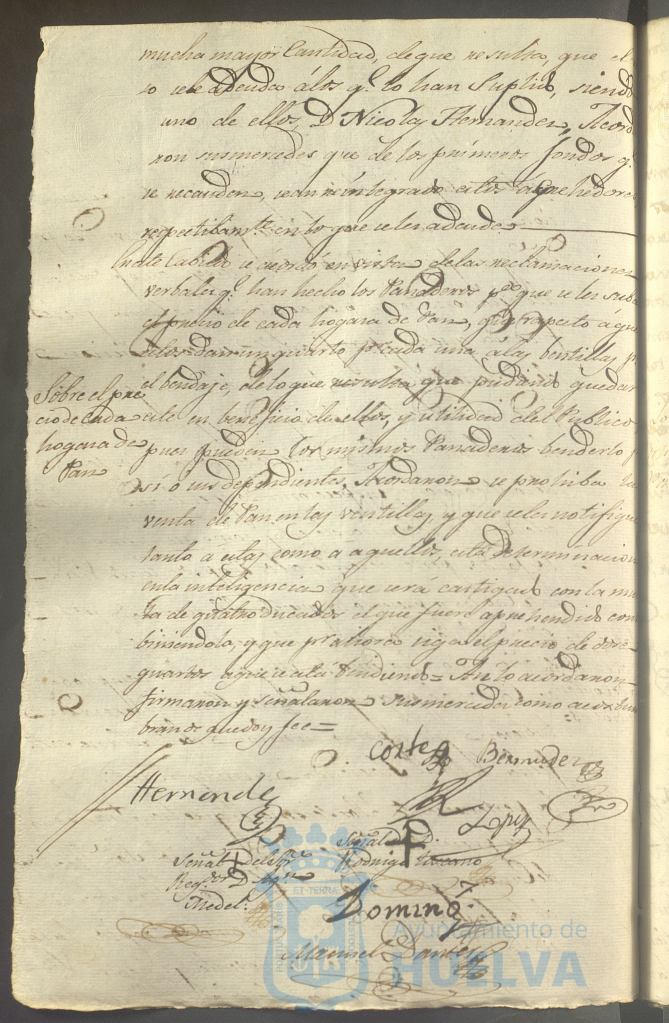 mucha mayor Cantidad, de que resulta, que el
se le adeuda á los q.e lo han Suplido, siend
uno de ellos, D Nicolas Hernandez, Acord
ron sus mercedes que de los primeros fondos q.e
se recauden, sean reintegrados estos
respectibam.te en lo que se les adeude.
En este Cabildo se acordó en vista de las reclamaciones
verbales q.e han hecho los Panaderos p.a que se les suba
el precio de cada hogaza de Pan, respecto a que
ellos dan un quarto p.r cada una á las bentillas p.r
Sobre el pre
cio de cada
hogaza de
Pan
el bendaje, de lo que resulta que pudiendo quedar
este en beneficio de ellos, y utilidad del Publico
pues pueden los mismos Panaderos benderlo p
sí o sus dependientes, Acordaron se prohiba la
venta de Pan en las ventillas, y que se les notifique
tanto a ellas como a aquellos, esta Determinacion
en la inteligencia que será castigado con la mul
ta de quatro ducados el que fuere aprehendido con
biniendola, y que p.r ahora siga el precio de doce
quartos a que se está bendiendo = Asi lo acordaron
firmaron y señalaron sus mercedes como acostum
bran de que doy fee =
Cortes Bermudez
Hernandez
Lopez
Señal de D.
Rodrigo
Señal del Sr.
Reg.or D.
Fidel.
Doming.z
Manuel
ET TERRA
Ayuntamiento de
HUELVA